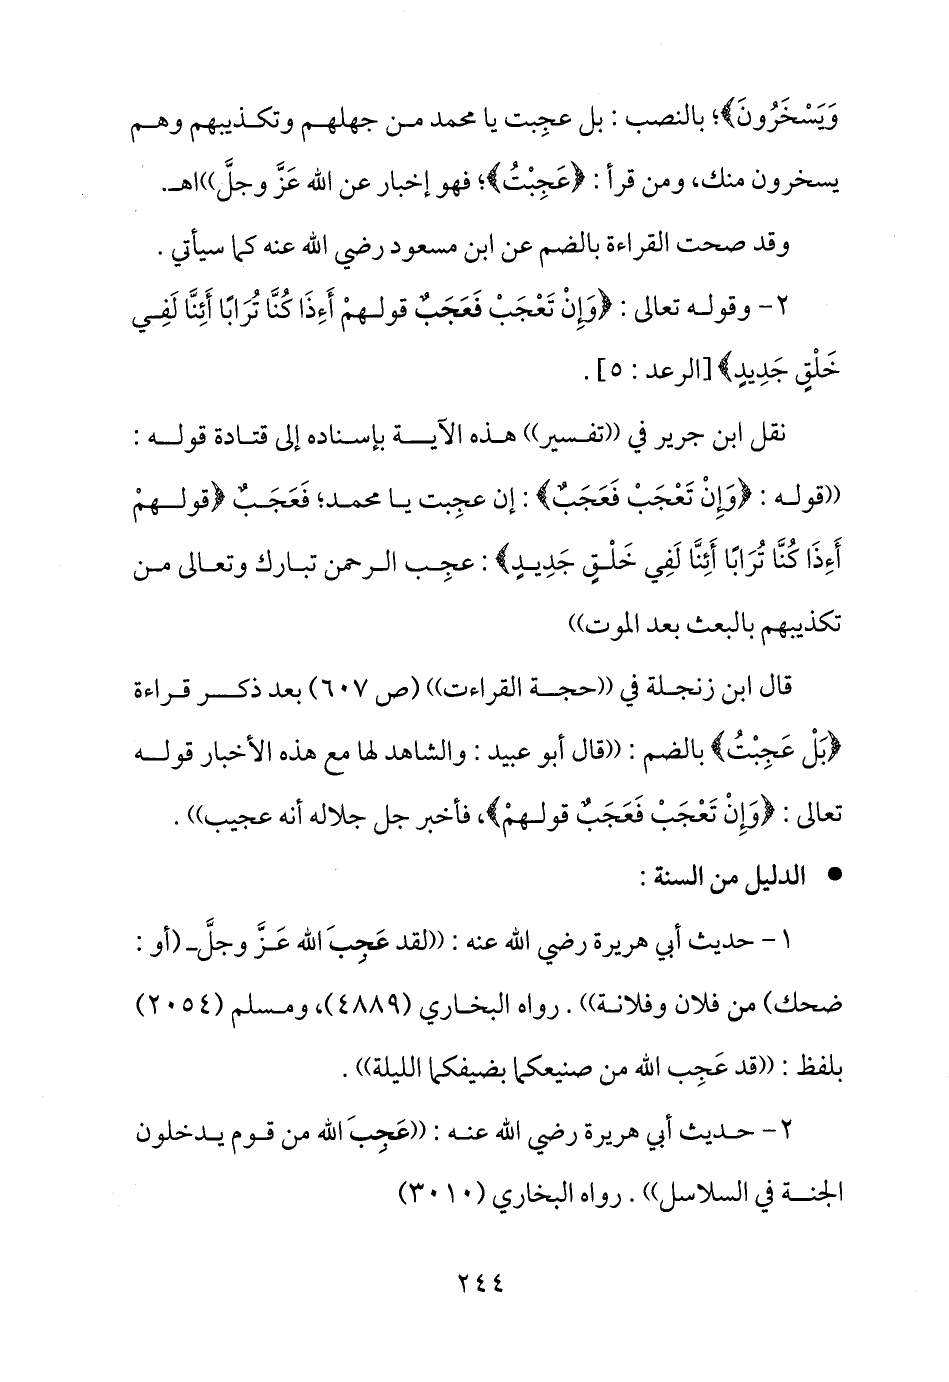 وَيَسْخَرُونَ﴾؛ بالنصب : بل عجِبت يا محمد مـن جهلهـم وتكـذيبهم وهـم
يسخرون منك، ومن قرأ : ﴿عَجِبْتُ﴾؛ فهو إخبار عن الله عَزَّ وجلَّ))اهـ.
وقد صحت القراءة بالضم عن ابن مسعود رضي الله عنه كما سيأتي .
٢- وقولـه تعالى : ﴿وَإِنْ تَعْجَبْ فَعَجَبٌ قولـهمْ أَءِذَا كُنَّا تُرَابًا أَئِنَّا لَفِـي
خَلْقٍ جَدِيدٍ﴾ [الرعد : ٥] .
نقل ابن جرير في ((تفـسير)) هـذه الآيـــة بإسـناده إلى قتـادة قولـــه :
((قولـه : ﴿وَإِنْ تَعْجَبْ فَعَجَبٌ﴾ : إن عجِبت يـا محمـد؛ فَعَجَـبٌ ﴿قولـــهمْ
أَءِذَا كُنَّا تُرَابًا أَئِنَّا لَفِي خَلْـقٍ جَدِيـدٍ﴾ : عجِـب الـرحمن تبـارك وتعـالى مـن
تكذيبهم بالبعث بعد الموت))
قال ابن زنجـلة في ((حجـة القراءت)) (ص ٦٠٧) بعد ذكـــر قـراءة
﴿بَلْ عَجِبْتُ﴾ بالضم : ((قال أبو عبيد : والشاهد لها مع هذه الأخبار قولـــه
تعالى : ﴿وَإِنْ تَعْجَبْ فَعَجَبٌ قولـهمْ﴾، فأخبر جل جلاله أنه عجيب)) .
● الدليل من السنة :
١- حديث أبي هريرة رضي الله عنه : ((لقد عَجِبَ الله عَـزَّ وجلَّ-(أو :
ضحك) من فلان وفلانـة)) . رواه البخـاري (٤٨٨٩)، ومـسلم (٢٠٥٤)
بلفظ : ((قد عَجِب الله من صنيعكما بضيفكما الليلة)) .
٢- حـديث أبي هريرة رضي الله عنـه : ((عَجِبَ الله من قـوم يـدخلون
الجنـــة في السلاسل)) . رواه البخاري (٣٠١٠)
٢٤٤